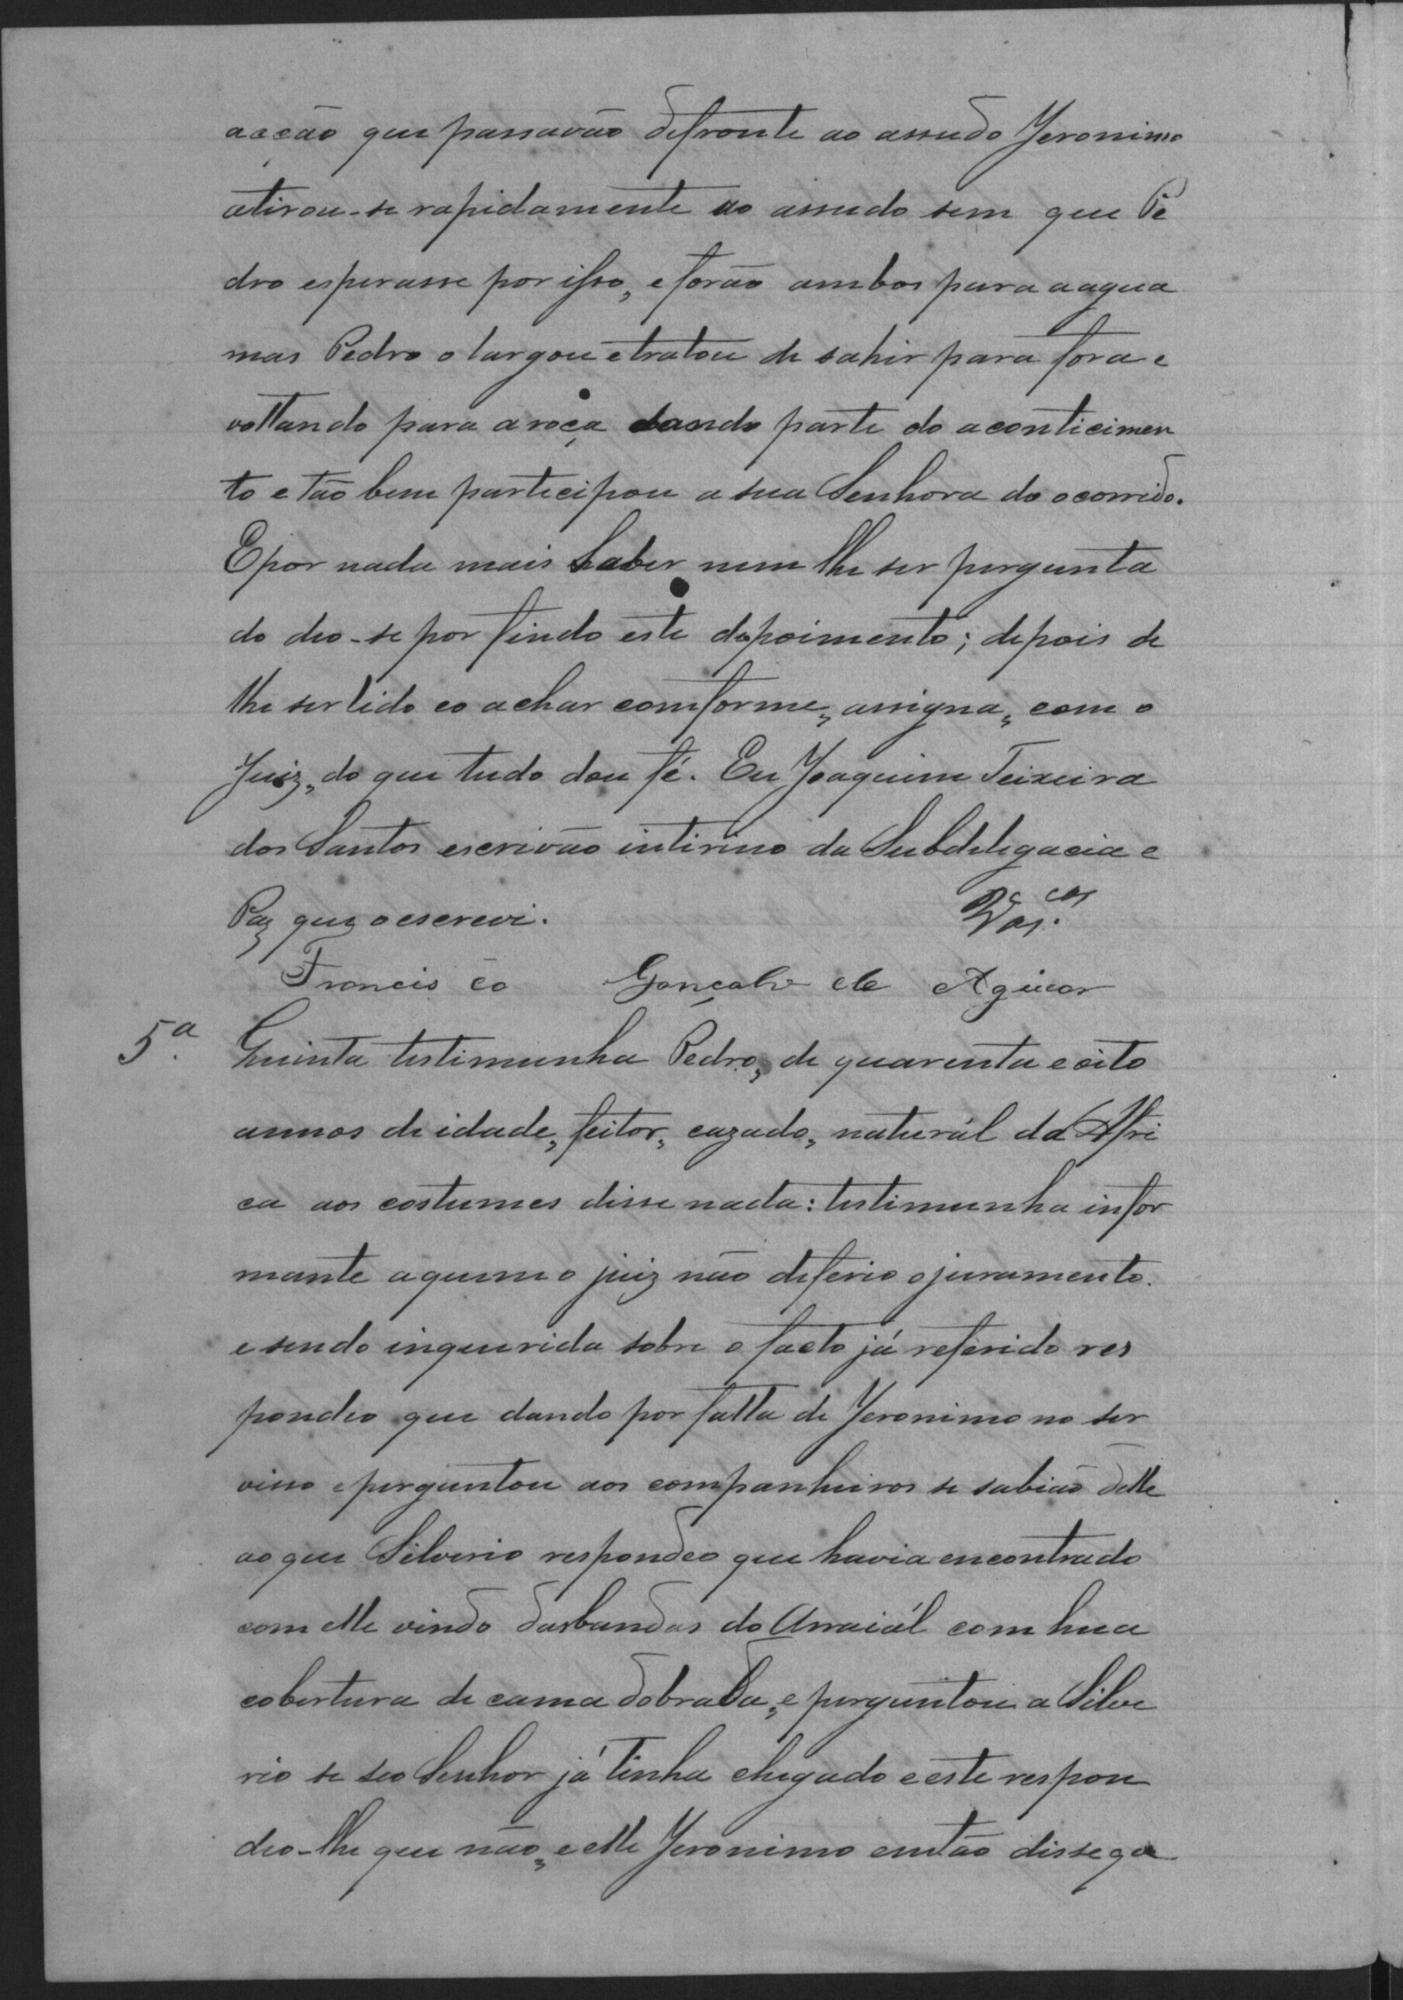 acção que passavão defronte ao assudo Jeronimo
atirou-se rapidamente ao assudo sem que Pe
dro esperasse por isso, e forão ambos para a agua
mas Pedro o largou e tratou de sahir para fora e
voltando para a roça dando parte do aconticimen
to e tão bem participou a sua Senhora do ocorrido.
E por nada mais saber nem lhe ser pergunta
do deo-se por findo este depoimento; depois de
lhe ser lido e o achar comforme, assigna, com o
Juiz, do que tudo dou fé. Eu Joaquim Teixeira
dos Santos escrivão intirino da Subdelegacia e
Paz que o escrevi.
Francisco Gonçalve de Aguiar
5ª. Quinta testimunha Pedro, de quarenta e oito
annos de idade, feitor, cazado, naturál da Afri
ca aos costumes disse nada: testimunha infor
mante a quem o juiz não deferio o juramento.
e sendo inquerida sobre o facto já referido res
pondeo que dando por falta de Jeronimo no ser
viso e perguntou aos companheiros se sabião delle
ao que Silverio respondeo que havia encontrado
com elle vindo das bandas do Arraiál com hua
cobertura de cama dobrada, e perguntou a Silve
rio se seo Senhor já tinha chegado e este respon
deo-lhe que não, e elle Jeronimo emtão disse que